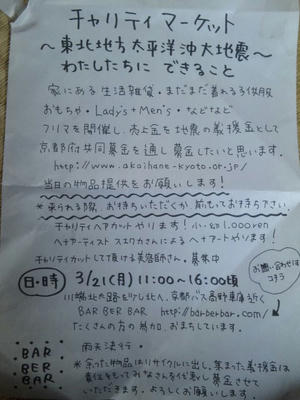 チャリティ マーケット
〜東北地方太平洋沖大地震〜
わたしたちに できること
家にある生活雑貨・まだまだ着れる子供服
おもちゃ・Lady's・Men's・などなど
フリマを開催し、売上金を地震の義援金として
京都府共同募金を通し募金したいと思います。
http://www.akaihane-kyoto.or.jp/
当日の物品提供をお願いします!
*来られる際、お持ちいただくか、前もってお持ち下さい。
チャリティヘアカットやります! 1.000yen
ヘナアーティスト スエワカさんによる ヘナアートやります!
チャリティカットして頂ける美容師さん、募集中
お問い合わせは
コチラ
日・時 3/21(月) 11:00〜16:00頃
京都バス高野車庫近く
BAR BER BAR http://barberbar.com/
たくさんの方の参加、お まちしています。
BAR
BER
BAR
雨天決行・
*余った物品はリサイクルに出し、集まった義援金は
責任をもってみなさんを代表し募金させて
いただきます。よろしくお願いします。